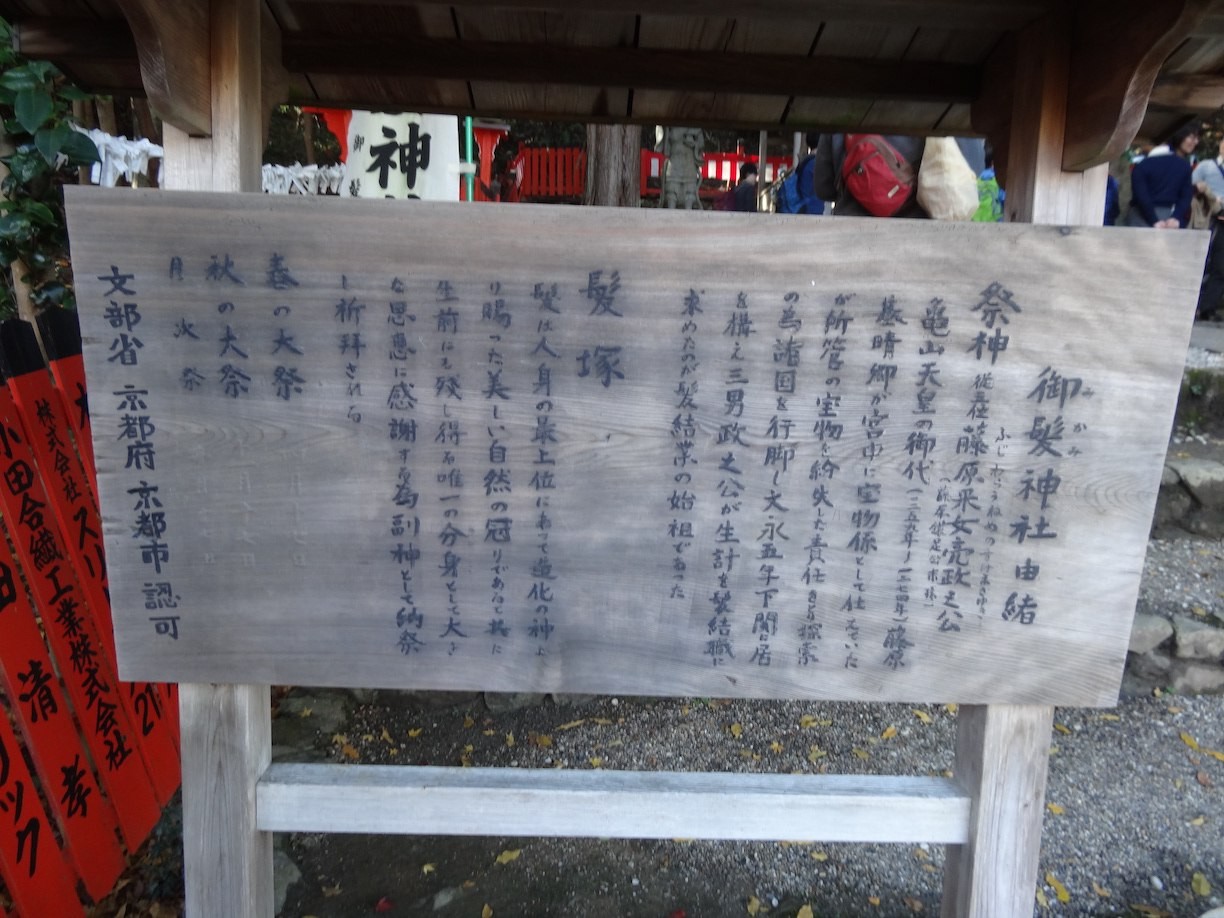 御髪神社由緒
みかみ
祭神 従五位藤原采女亮政之公
亀山天皇の御代(一二五九年~一二七四年)藤原
基晴卿が宮中に宝物係として仕えていた
が所管の宝物を紛失した責任をとり探索
の為諸国を行脚し文永五年下関に居
を構え三男政之公が生計を髪結職に
求めたのが髪結業の始祖であった
髪塚
髪は人身の最上位にあって造化の神よ
り賜った美しい自然の冠りであると共に
生前にも残し得る唯一の分身として大き
な恩恵に感謝する為副神として納祭
し祈拜される
春の大祭
秋の大祭
月次祭
文部省 京都府 京都市 認可
御髪
神
株式会社スリ
小田合繊工業株式会社
清孝
ック
21